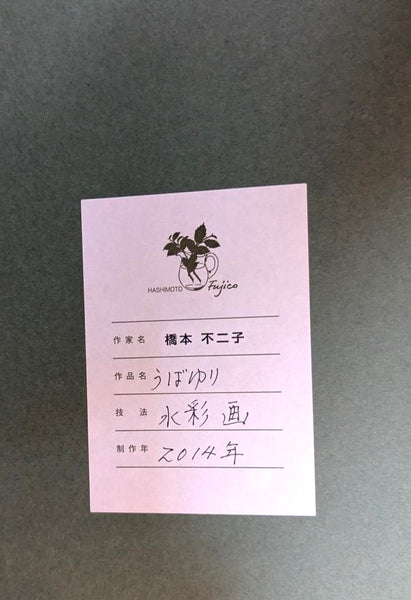 HASHIMOTO Fujico
作家名 橋本 不二子
作品名 うばゆり
技法 水彩画
制作年 2014年